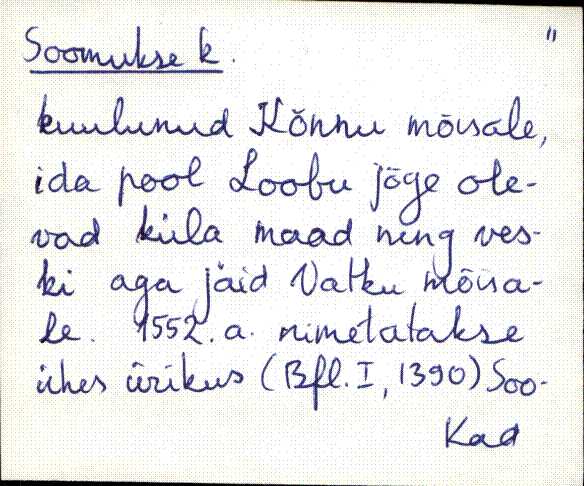 Soomukse k.
"
kuulunud Kõnnu mõisale,
ida pool Loobu jõge ole-
vad küla maad ning ves-
ki aga jäid Vatku mõisa-
le. 1552. a. nimetatakse
ühes ürikus (Bfl. I, 1390) Soo-
Kad